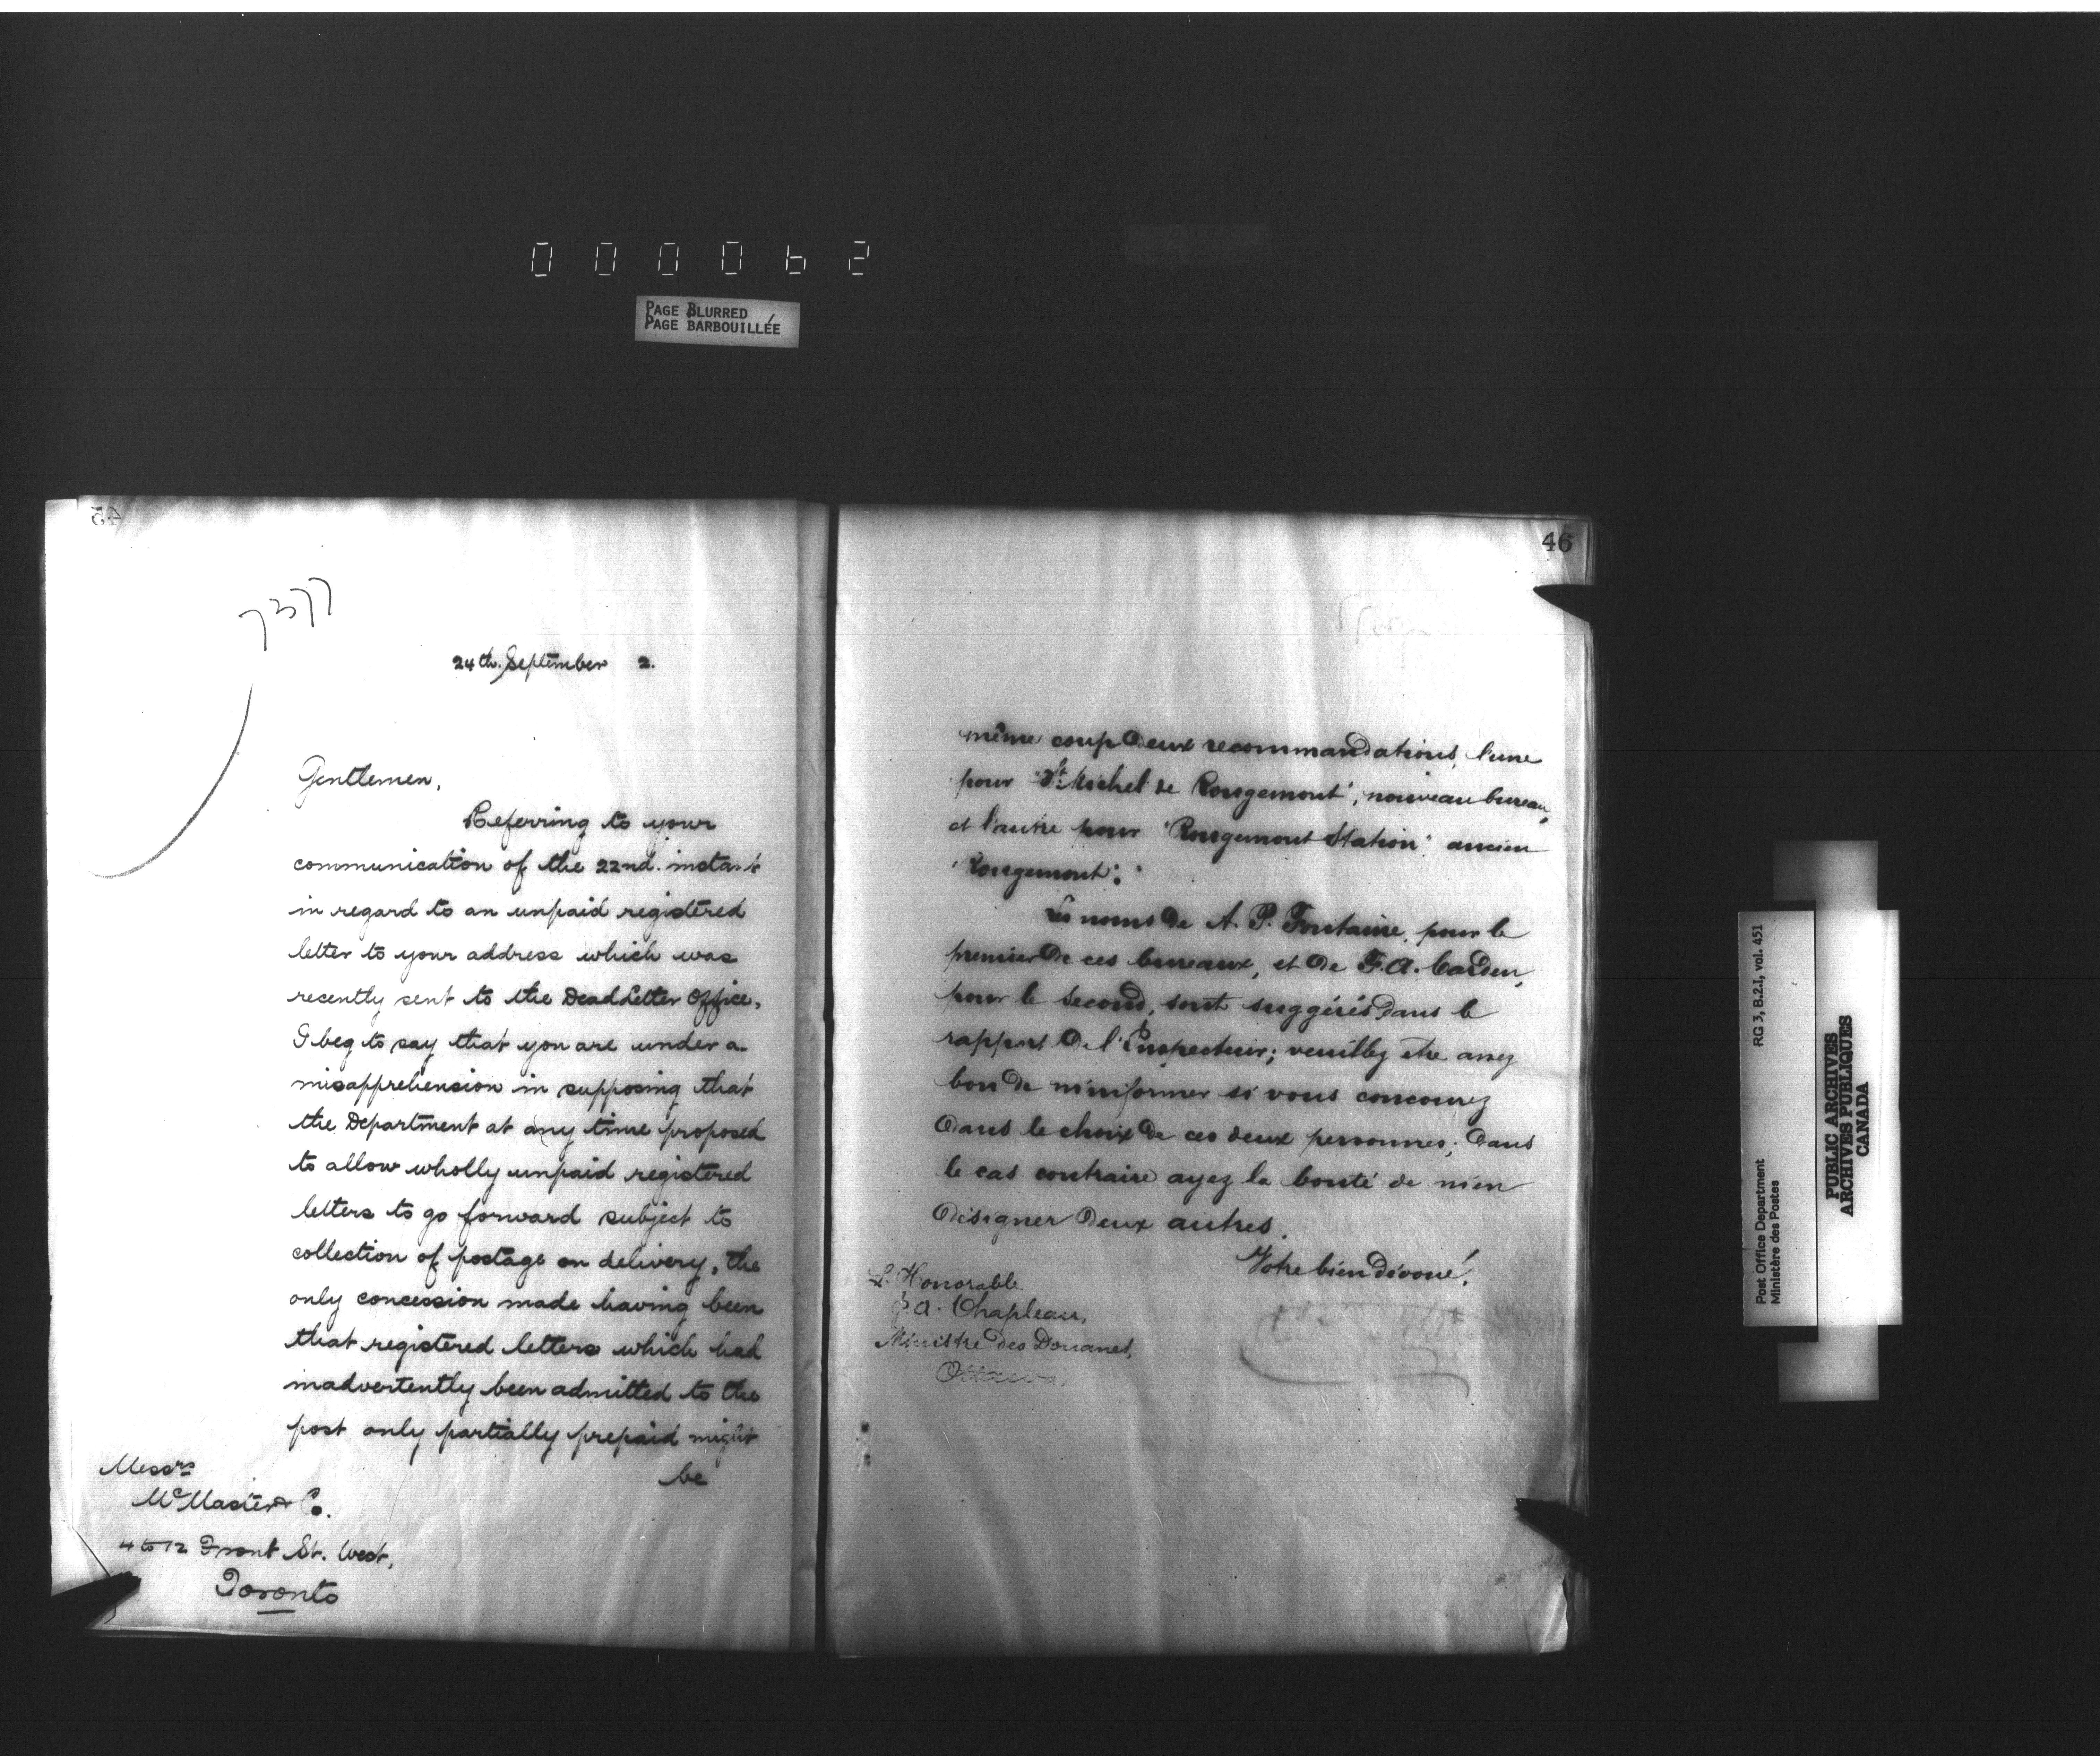 000062
PAGE BLURRED
PAGE BARBOUILLÉE
45
7377
24th. September 2.
Gentlemen,
Referring to your
communication of the 22nd. instant
in regard to an unpaid registered
letter to your address which was
recently sent to the Dead Letter Office,
I beg to say that you are under a
misapprehension in supposing that
the Department at any time proposed
to allow wholly unpaid registered
letters to go forward subject to
collection of postage on delivery, the
only concession made having been
that registered letters which had
inadvertently been admitted to the
post only partially prepaid might
be
Messrs
McMaster & Co.
4 to 12 Front St. West,
Toronto
46
même coup deux recommandations, l'une
pour "St. Michel de Rougemont", nouveau bureau,
et l'autre pour "Rougemont Station" ancien
"Rougemont".
Les noms de A. P. Fontaine, pour le
premier de ces bureaux, et de F. A. Carden,
pour le second, sont suggérés dans le
rapport de l'Inspecteur; veuillez être assez
bon de m'informer si vous concourez
dans le choix de ces deux personnes; dans
le cas contraire ayez la bonté de m'en
désigner deux autres.
Votre bien dévoué,
L'Honorable
J. A. Chapleau,
Ministre des Douanes,
Ottawa.
RG 3, B.2.I, vol. 451
Post Office Department
Ministère des Postes
PUBLIC ARCHIVES
ARCHIVES PUBLIQUES
CANADA